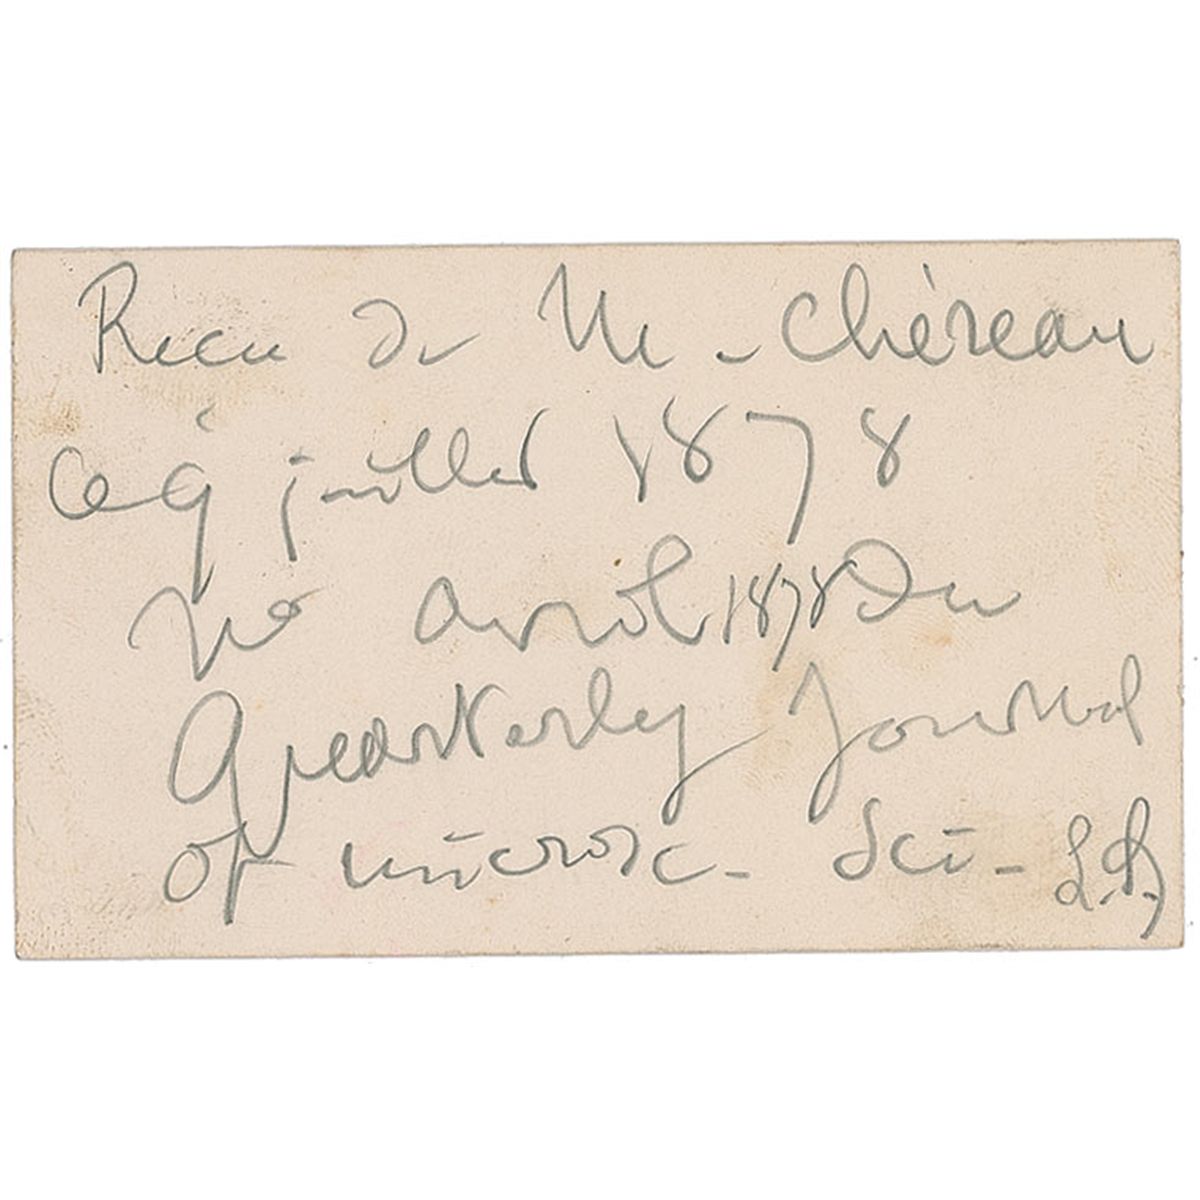 Recu de M. Chéreau
Ce 9 juillet 1878
no avril 1878 du
Quearterly Journal
of microsc. Sci. L.P.